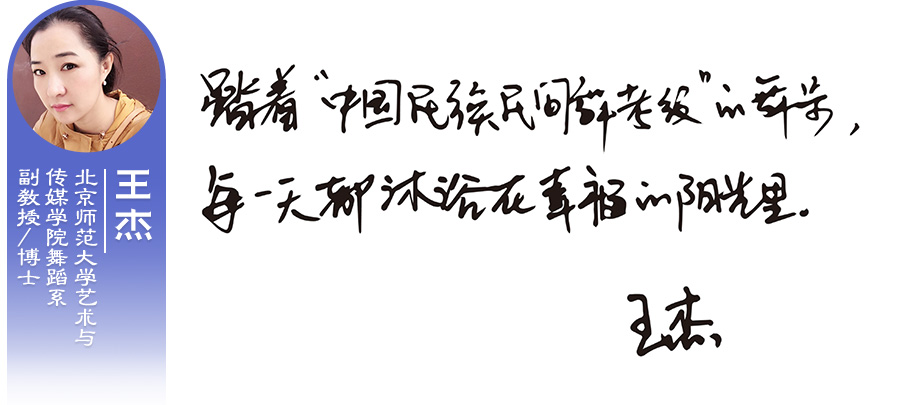 王杰
北京师范大学艺术与
传媒学院舞蹈系
副教授/博士
踏着“中国民族民间舞考级”的舞步，
每一天都沐浴在幸福的阳光里。
王杰